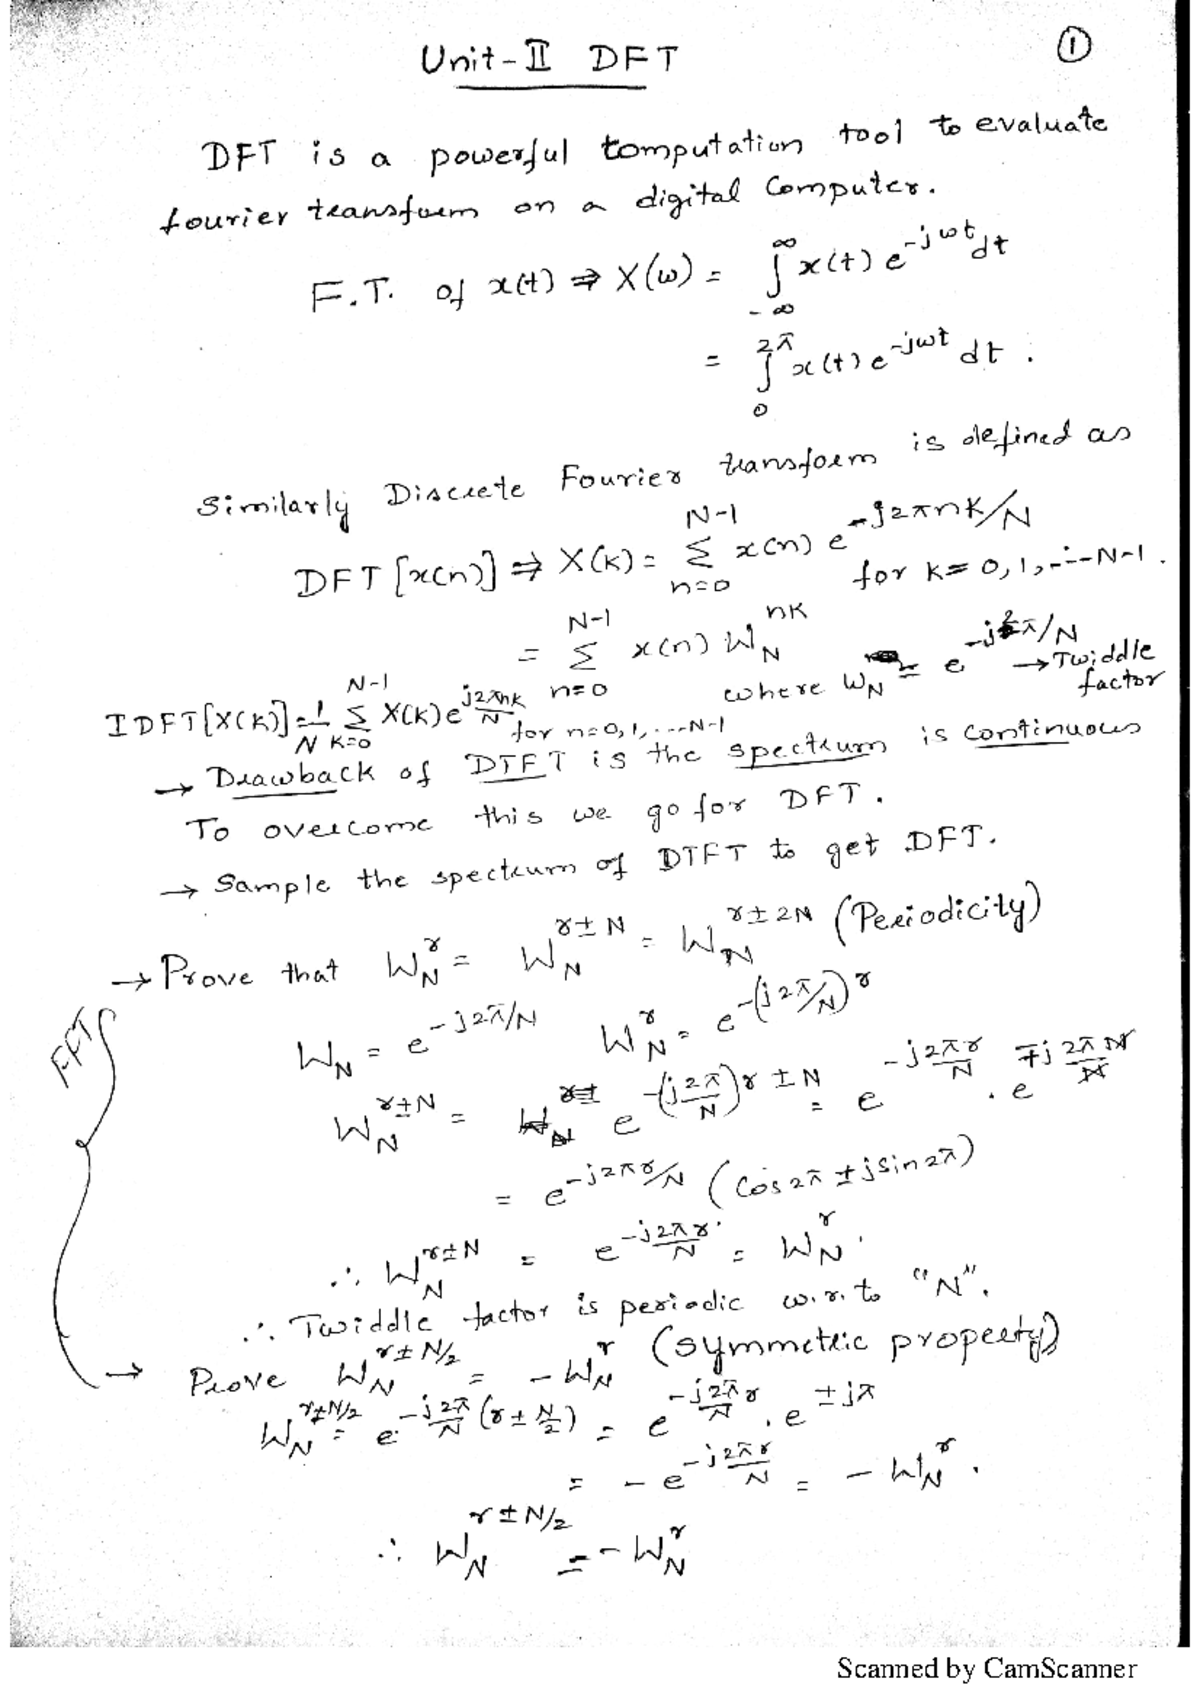 Unit-II DFT
①
DFT is a powerful computation tool to evaluate
fourier transform on a digital Computer.
F.T. of x(t) ⇒ X(ω) = ∫_{-∞}^{∞} x(t) e^{-jωt} dt
= ∫_{0}^{2π} x(t) e^{-jωt} dt.
Similarly Discrete Fourier transform is defined as
DFT[x(n)] ⇒ X(k) = Σ_{n=0}^{N-1} x(n) e^{-j2πnk/N} for k = 0, 1, ... N-1.
= Σ_{n=0}^{N-1} x(n) W_N^{nk} where W_N = e^{-j2π/N} → Twiddle factor
IDFT[X(k)] = 1/N Σ_{k=0}^{N-1} X(k) e^{j2πnk/N} for n=0, 1, ... N-1
→ Drawback of DTFT is the spectrum is continuous
To overcome this we go for DFT.
→ Sample the spectrum of DTFT to get DFT.
→ Prove that W_N^r = W_N^{r±N} = W_N^{r±2N} (Periodicity)
FFT
W_N = e^{-j2π/N} W_N^r = e^{-(j2π/N)r}
W_N^{r±N} = e^{-(j2π/N)r±N} = e^{-j2πr/N} . e^{∓j2πN/N}
= e^{-j2πr/N} (Cos2π ± jSin2π)
∴ W_N^{r±N} = e^{-j2πr/N} = W_N^r.
∴ Twiddle factor is periodic w.r.to "N".
→ Prove W_N^{r±N/2} = -W_N^r (symmetric property)
W_N^{r±N/2} = e^{-j2π/N (r±N/2)} = e^{-j2π/N r} . e^{±jπ}
= -e^{-j2πr/N} = -W_N^r.
∴ W_N^{r±N/2} = -W_N^r
Scanned by CamScanner